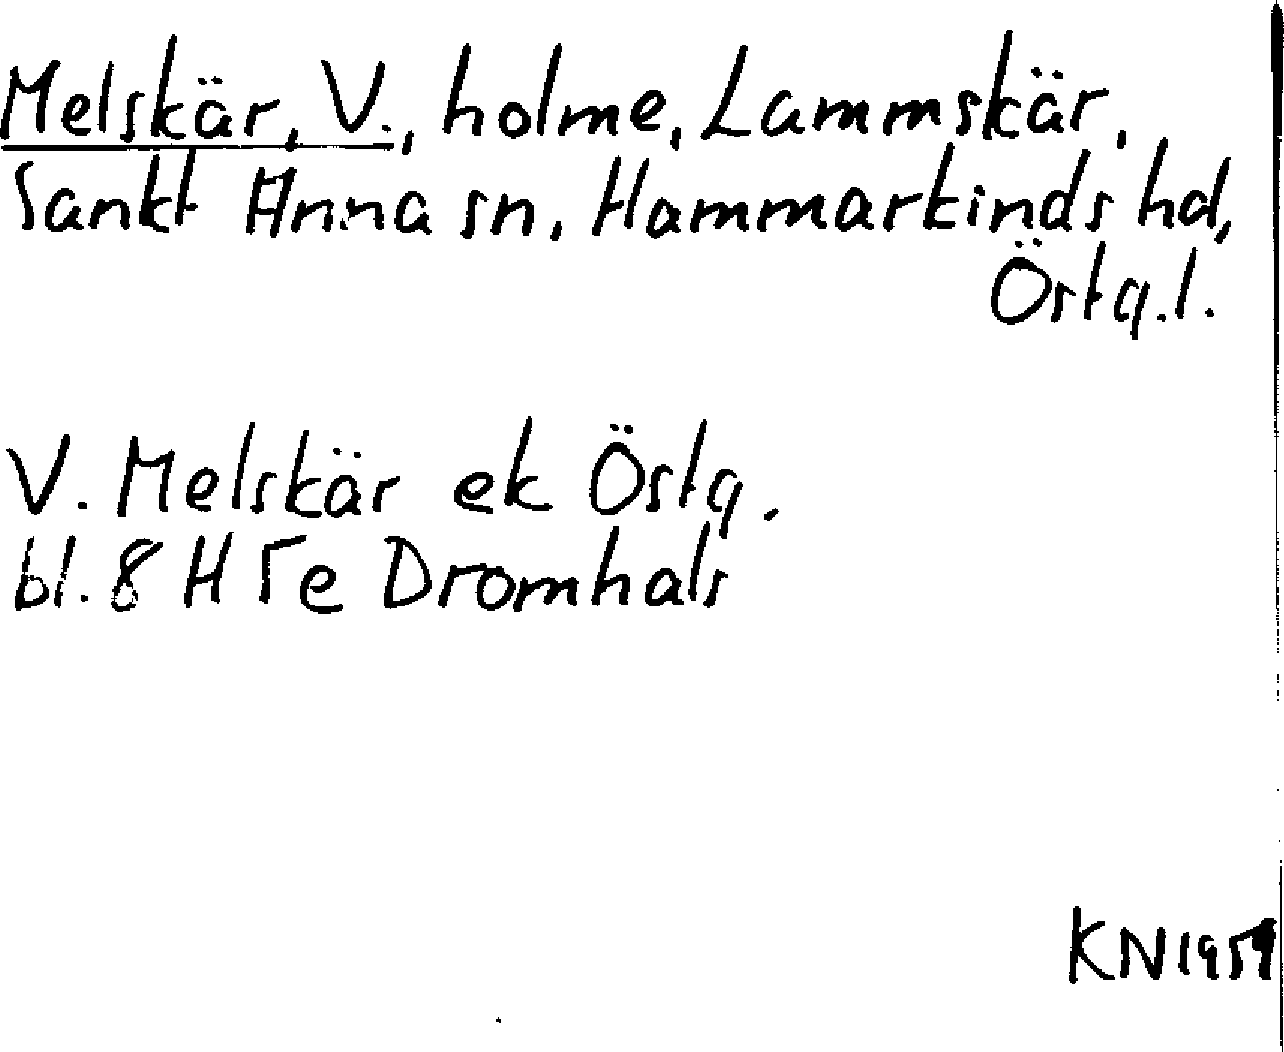 Melskär, V., holme, Lammskär,
Sankt Anna sn, Hammarkinds hd,
Östg.l.
V. Melskär ek Östg.
bl. 8 H 5e Dromhals
KN 1959